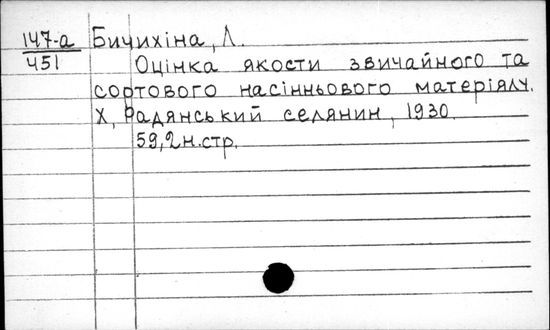 147-а Бичихіна, Л.
451 Оцінка якости звичайного та
сортового насінньового матеріялу.
Х, Радянський селянин, 1930.
59,2н.стр.